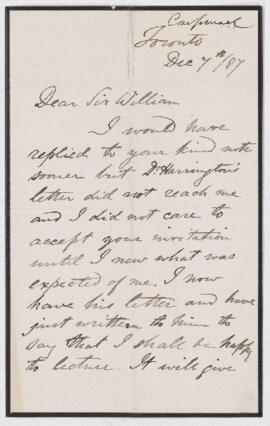 Toronto
Dec 7th/87
Dear Sir William
I would have
replied to your kind note
sooner but Dr. Harrington's
letter did not reach me
and I did not care to
accept your invitation
until I new what was
expected of me. I now
have his letter and have
just written to him to
say that I shall be happy
to lecture. It will give